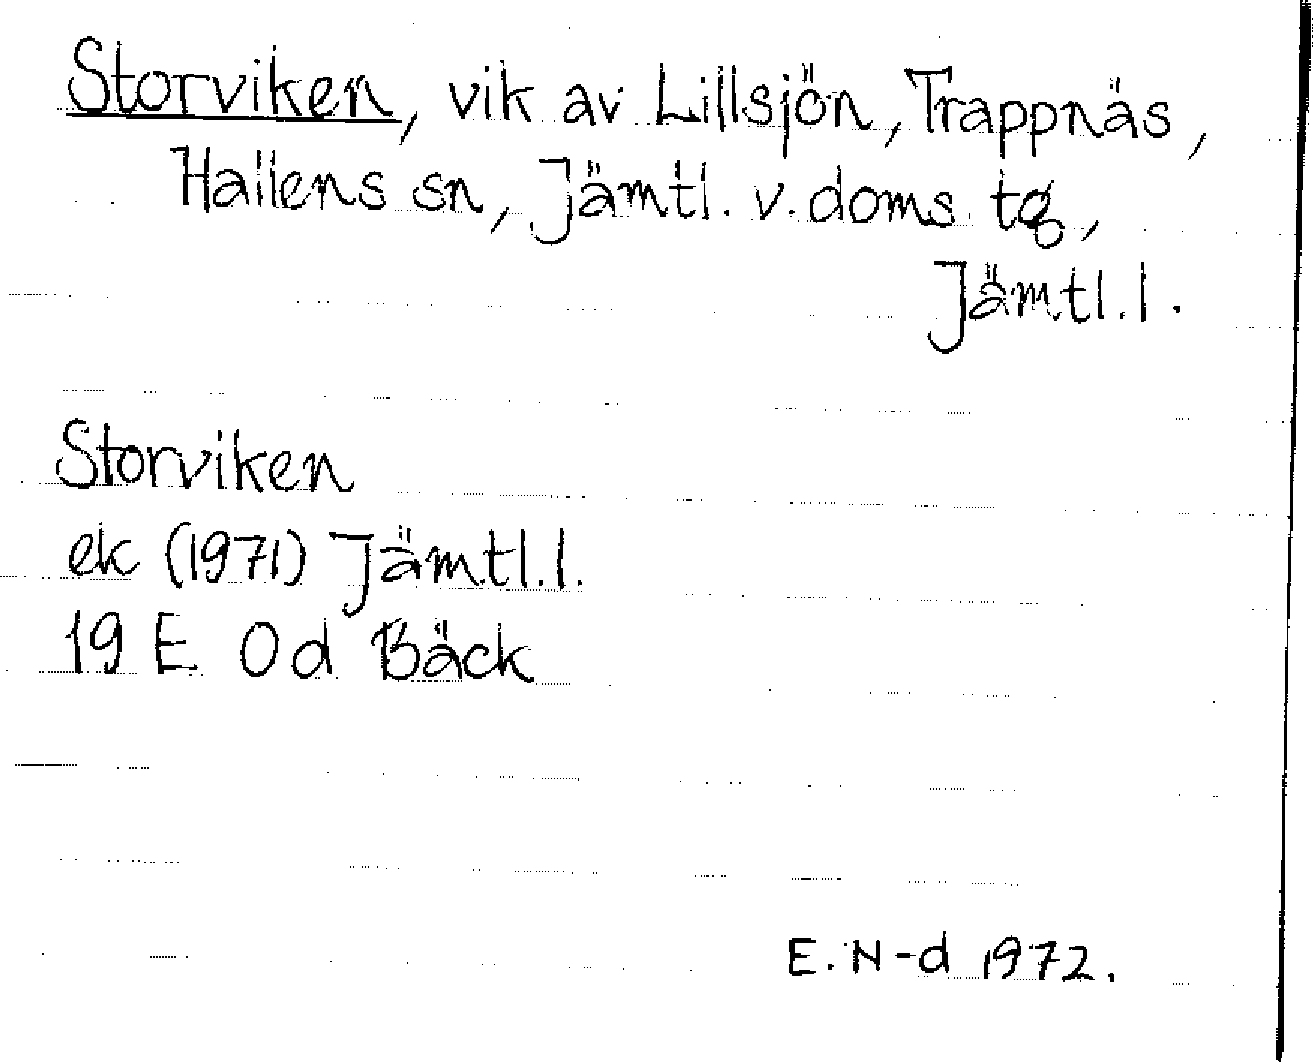 Storviken, vik av Lillsjön, Trappnäs,
Hallens sn, Jämtl. v. doms. tg,
Jämtl. l.
Storviken
ek (1971) Jämtl. l.
19 E 0 d Bäck
E. N-d 1972.